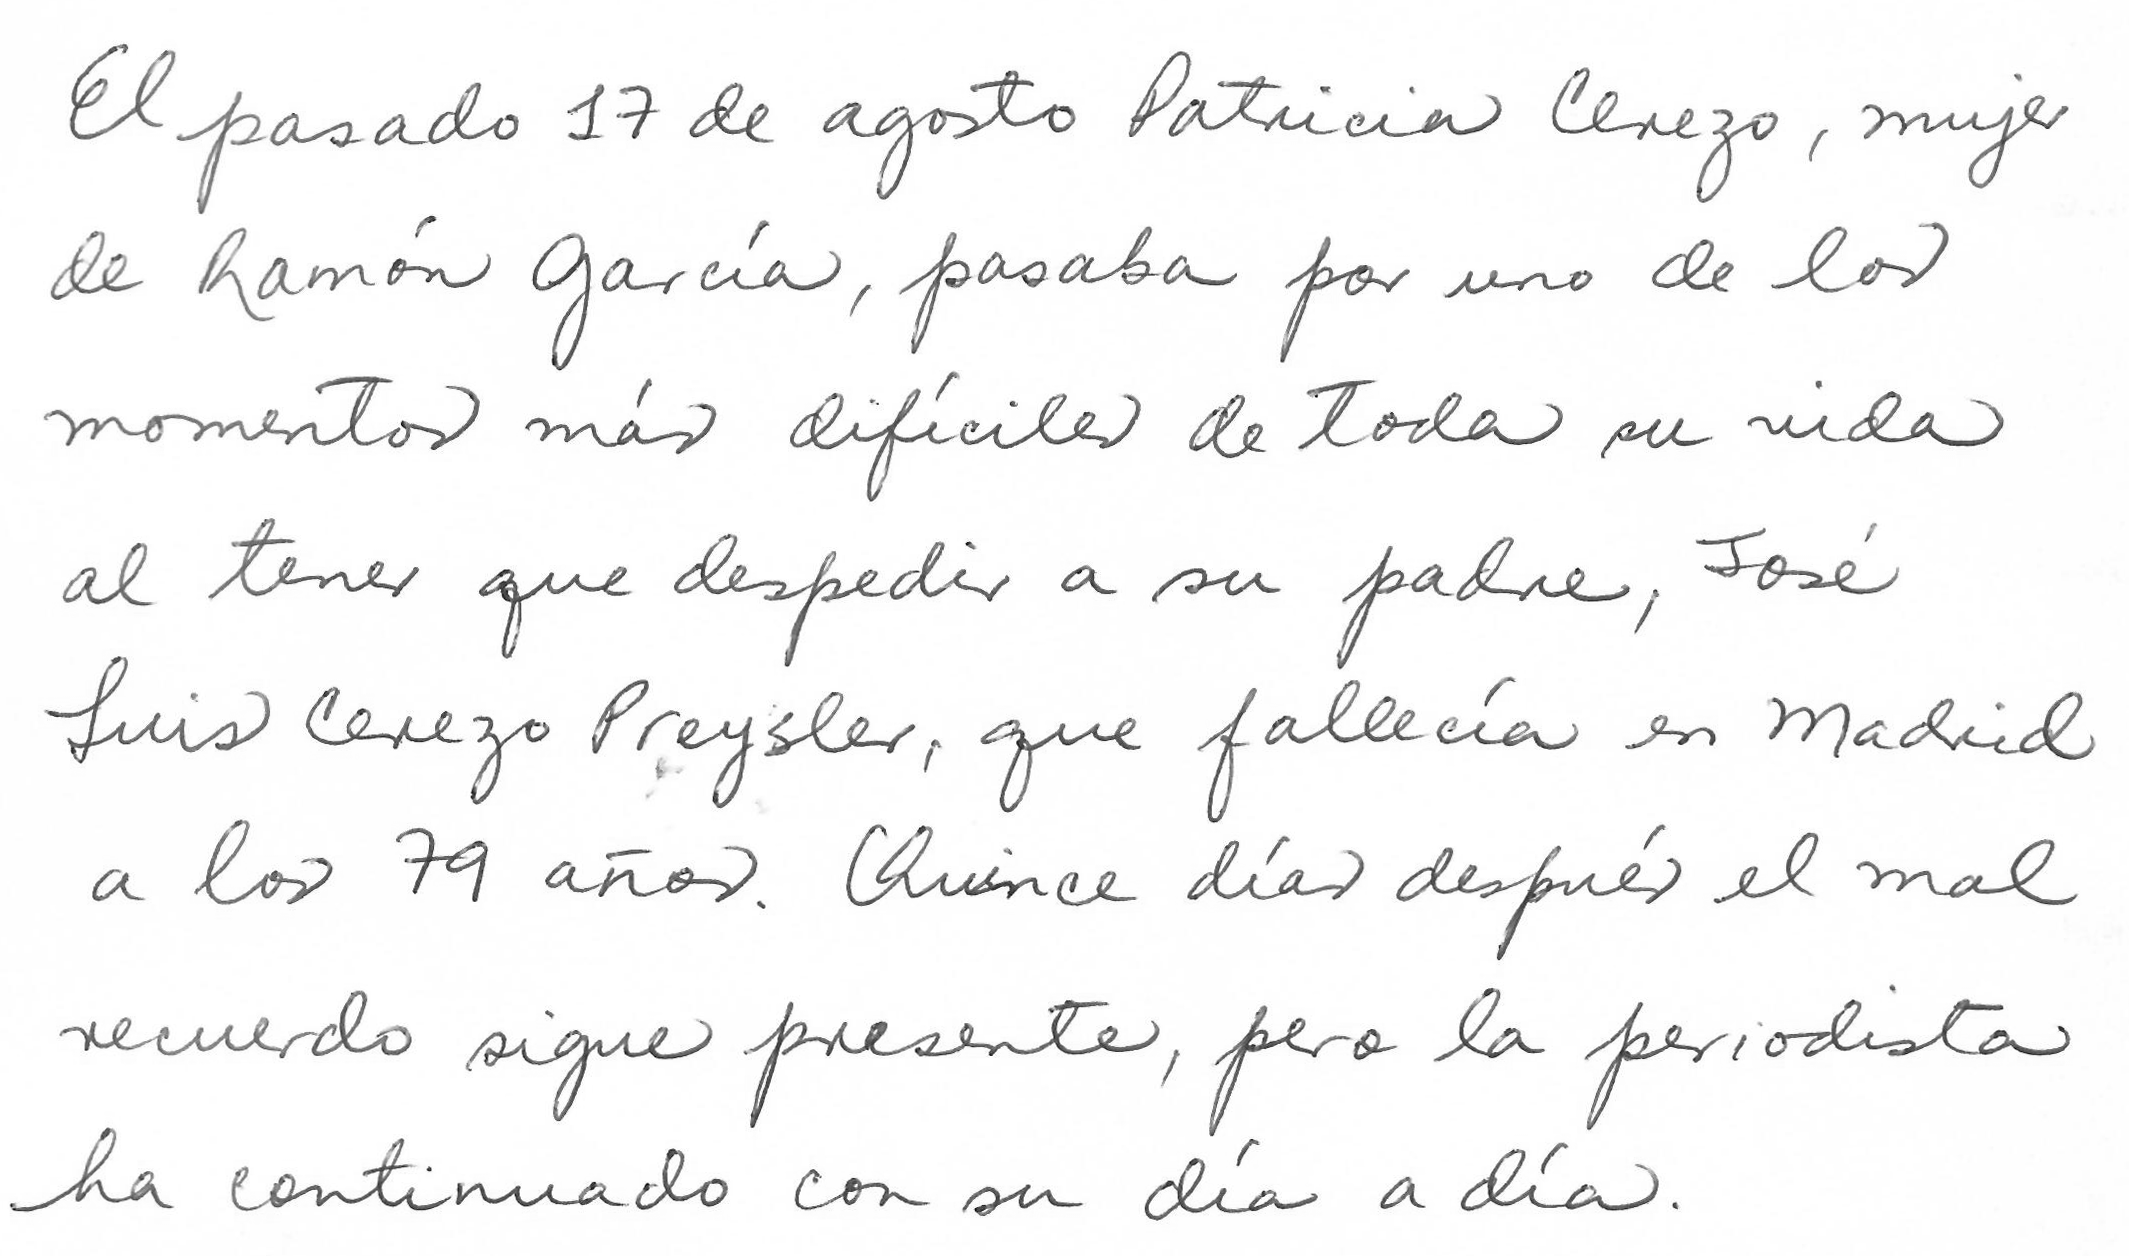 El pasado 17 de agosto Patricia Cerezo, mujer
de Ramón García, pasaba por uno de los
momentos más difíciles de toda su vida
al tener que despedir a su padre, José
Luis Cerezo Preysler, que fallecía en Madrid
a los 79 años. Quince días después el mal
recuerdo sigue presente, pero la periodista
ha continuado con su día a día.